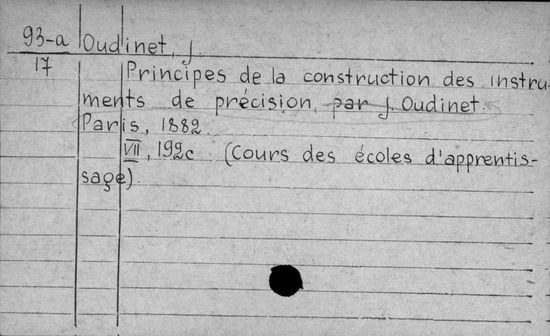 93-a Oudinet, J.
17 Principes de la construction des instru-
ments de précision, par J. Oudinet.
Paris, 1882.
VII, 192c. (Cours des écoles d'apprentis-
sage).